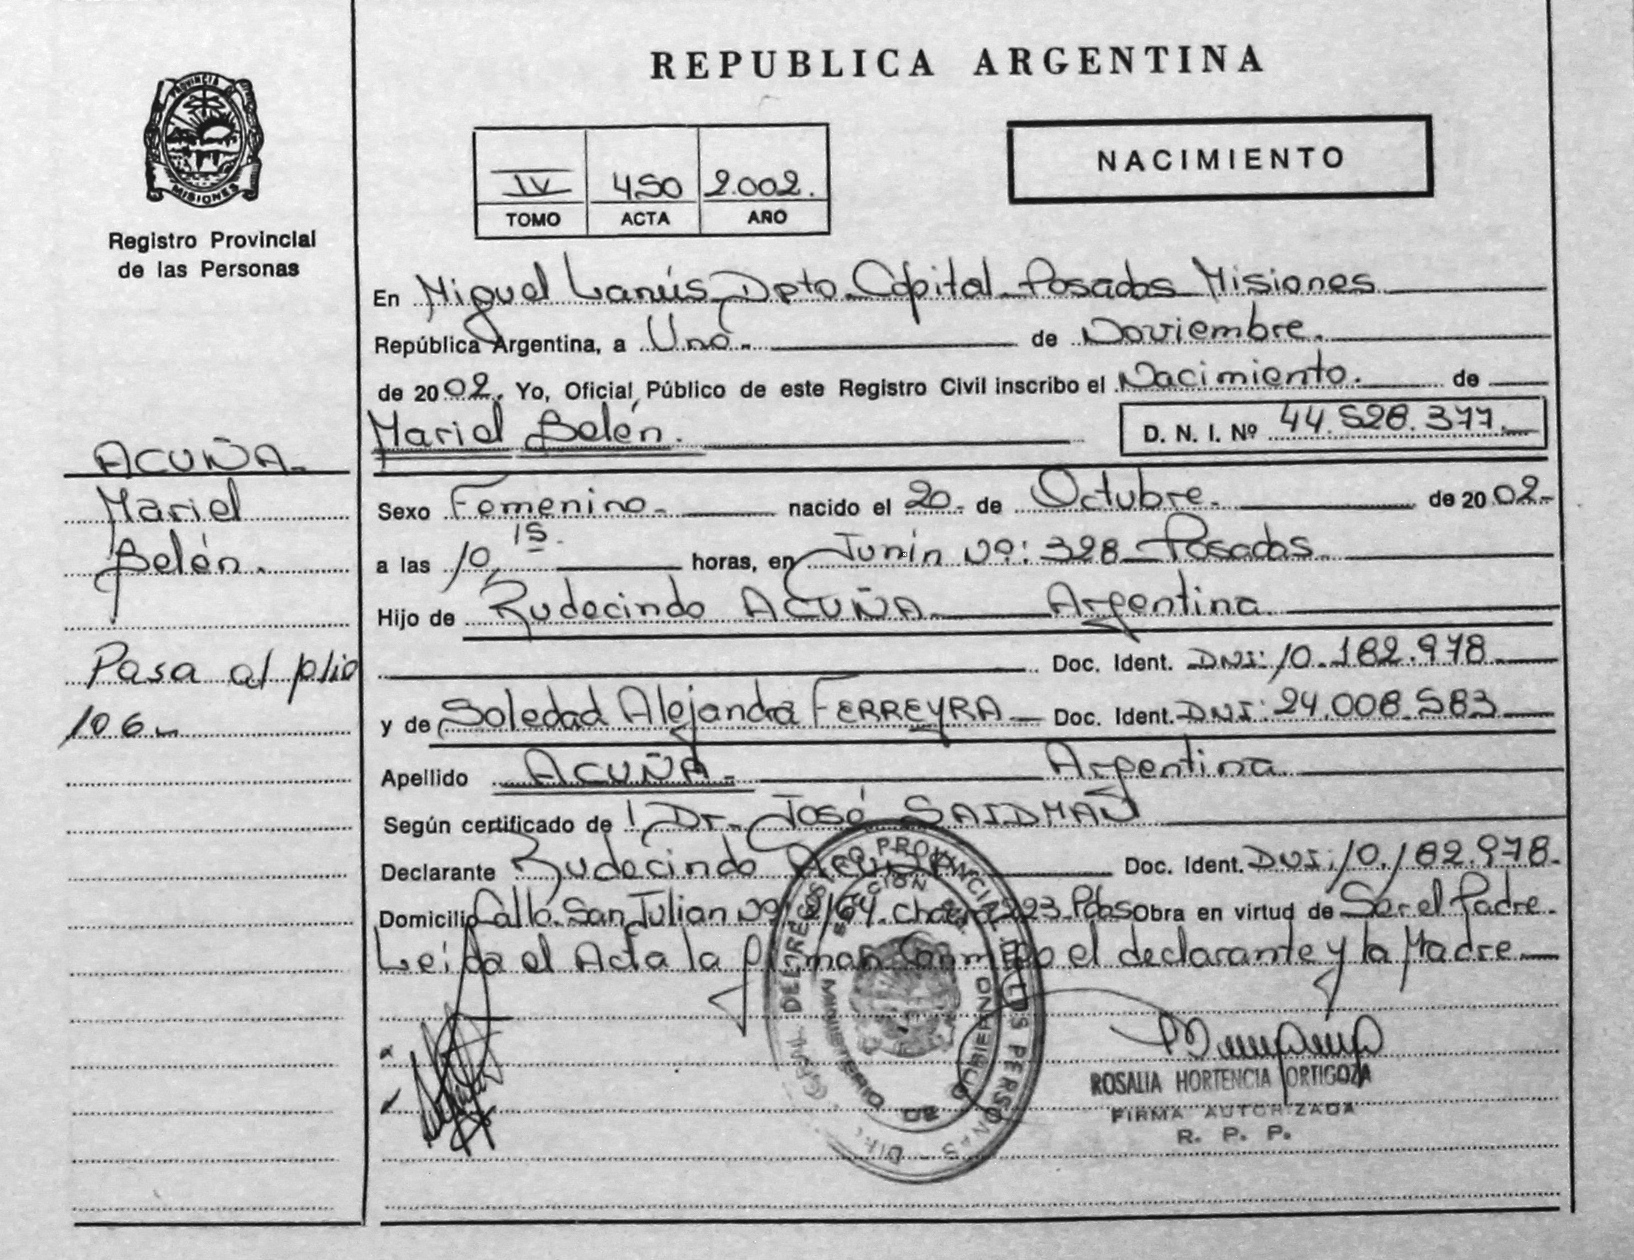 REPUBLICA ARGENTINA
PROVINCIA DE
MISIONES
Registro Provincial
de las Personas
NACIMIENTO
IV 450 2.002.
TOMO ACTA AÑO
En Miguel Lanús, Dpto. Capital Posadas Misiones
República Argentina, a Uno. de Noviembre.
de 2002. Yo, Oficial Público de este Registro Civil inscribo el Nacimiento. de
Mariel Belén. D. N. I. Nº 44.528.377.
ACUÑA.
Mariel
Belén.
Pasa al folio
106
Sexo Femenino. nacido el 20. de Octubre. de 2002.
a las 10,15. horas, en Junín Nº: 328 Posadas
Hijo de Rudecindo ACUÑA Argentina
Doc. Ident. DNI: 10.182.978
y de Soledad Alejandra FERREYRA Doc. Ident. DNI: 24.008.583
Apellido ACUÑA. Argentina
Según certificado de Dr. José SAIDMAN
Declarante Rudecindo ACUÑA Doc. Ident. DNI: 10.182.978.
Domicilio Calle San Julian Nº 2164 223 Pdas Obra en virtud de Ser el Padre.
Leída el Acta la firman conmigo el declarante y la Madre
ROSALIA HORTENCIA ORTIGOZA
FIRMA AUTORIZADA
R. P. P.
PROVINCIAL DE LAS PERSONAS
MINISTERIO DE GOBIERNO